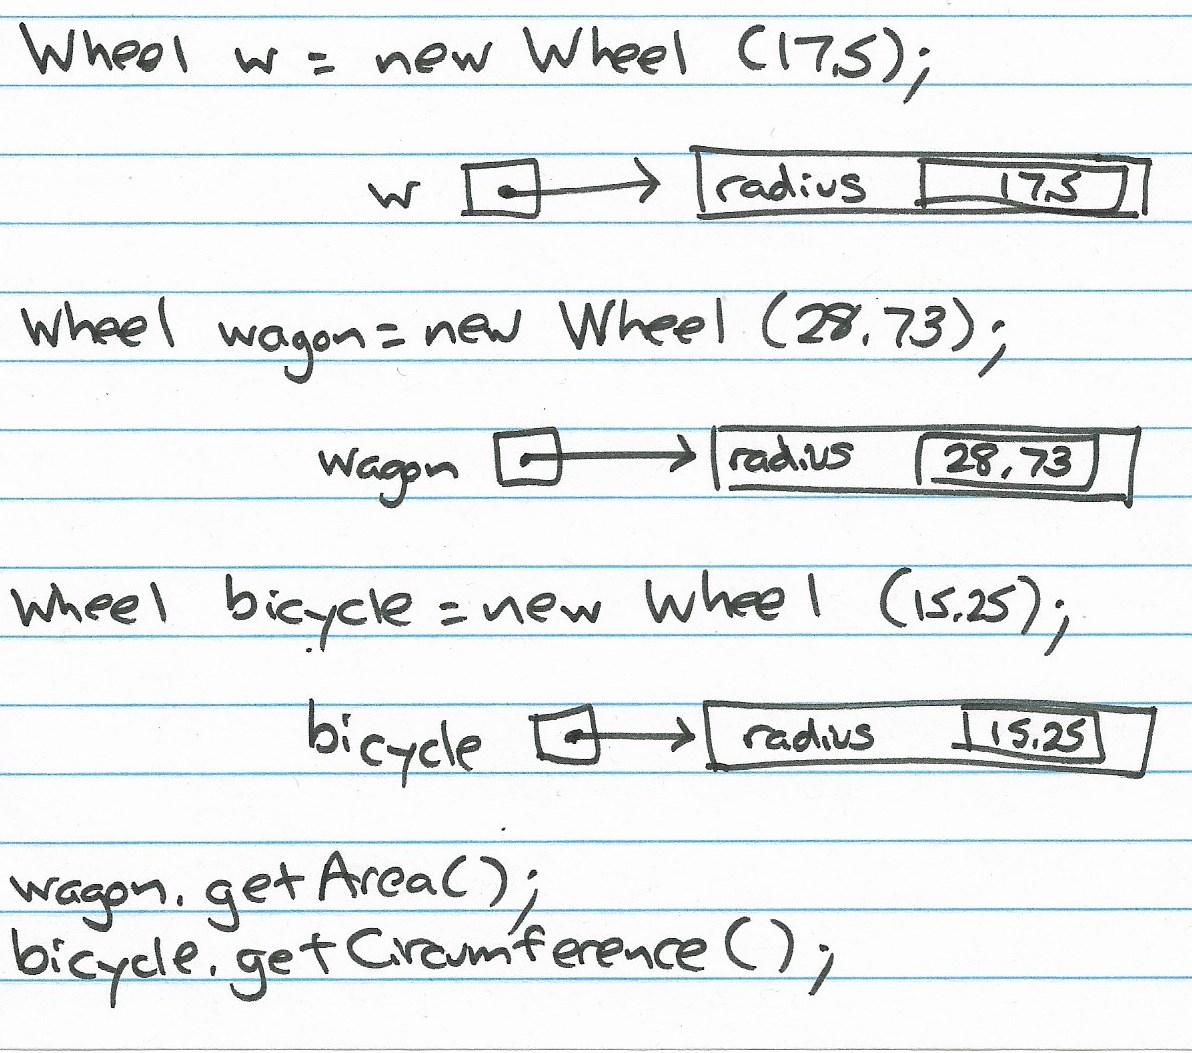 Wheel w = new Wheel (17.5);
w radius 17.5
Wheel wagon = new Wheel (28.73);
wagon radius 28.73
Wheel bicycle = new Wheel (15.25);
bicycle radius 15.25
wagon.getArea();
bicycle.getCircumference();